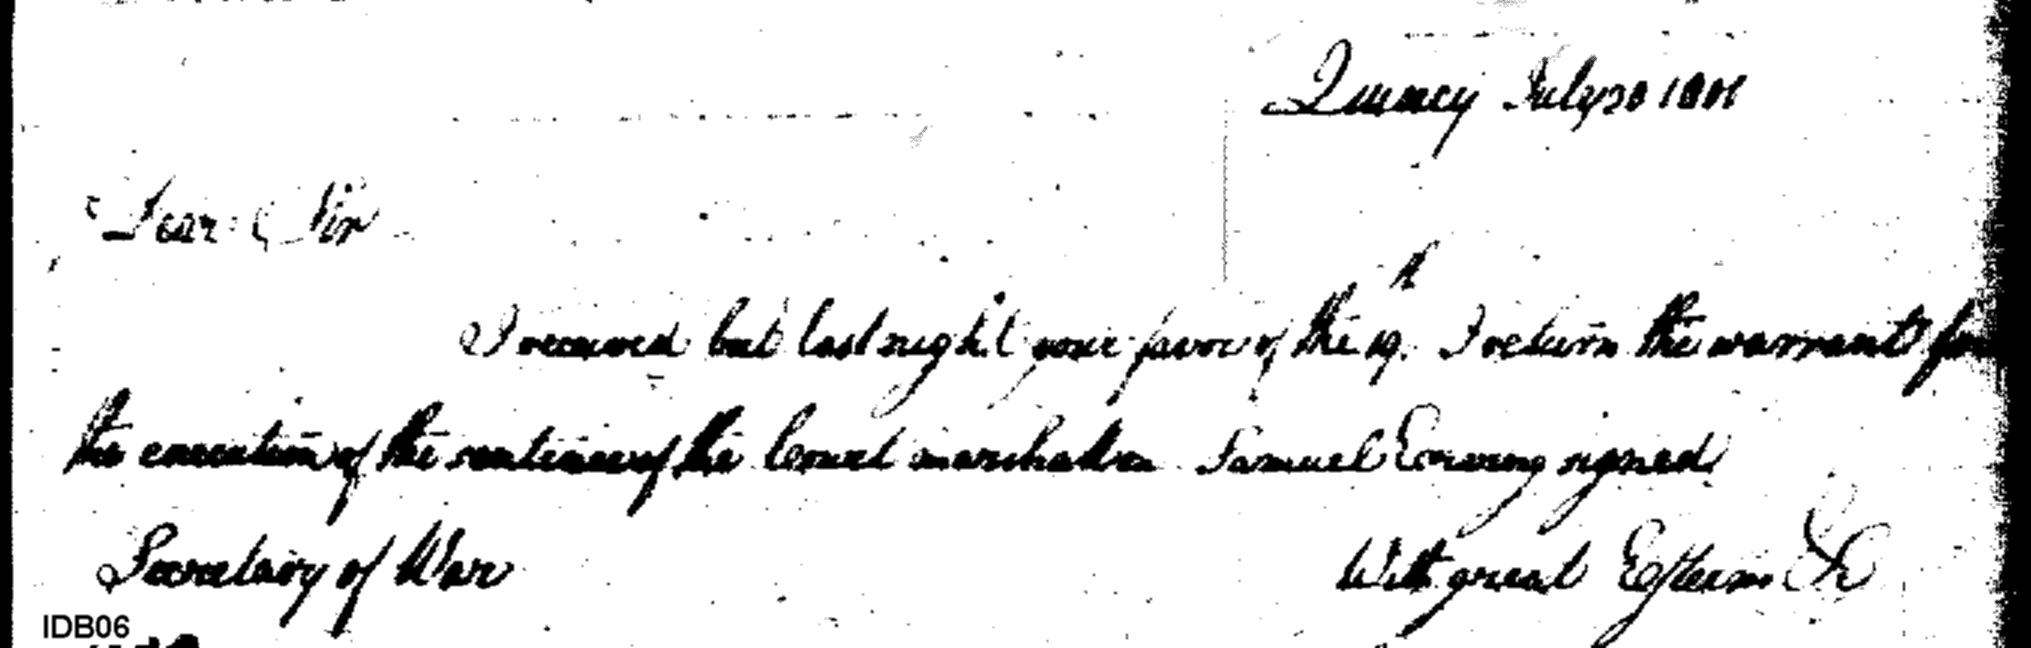 Quincy July 30 1801
Dear Sir
I received but last night your favor of the 19th. I return the warrant for
the execution of the sentence of the Court marshall on Samuel Ewing signed
Secretary of War
With great Esteem &c
IDB06